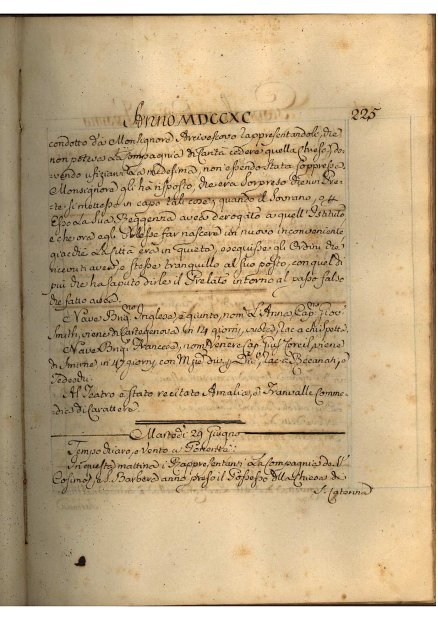 Anno MDCCXC
225
condotto da Monsignore Arcivescovo rappresentandole, che
non poteva la Compagnia di Carità cedere quella Chiesa, do-
vendo ufiziare la medesima, non essendo stata soppressa.
Monsignore gli ha risposto, che era sorpreso che un Pre-
te si mettesse in capo tal cose, quando il Sovrano, e
la Sua Reggenza aveva derogato a quell'Istituto
e che ora egli volesse far nascere un nuovo inconveniente
giacchè la Città era in quiete, eseguisse gli Ordini che
ricevuti aveva, e stesse tranquillo al suo posto, con quel di
più che ha saputo dirle il Prelato intorno al passo falso
che fatto aveva.
Nave Inglese, nom. L'Anna, Cap. Gio.
Smith, viene di Cartagenova in 14 giorni,
Nave Francese, nom. Venere Cap.
di Smirne in 47 giorni con
Tedeschi.
Al Teatro è stato recitato Amalia, e Tranvalle Comme-
dia di Carattere.
Martedì 29 Giugno
Tempo chiaro, e vento a Ponente.
In questa mattina i Rappresentanti la Compagnia di
Cosimo, e S. Barbera anno preso il Possesso della Chiesa di
S. Caterina